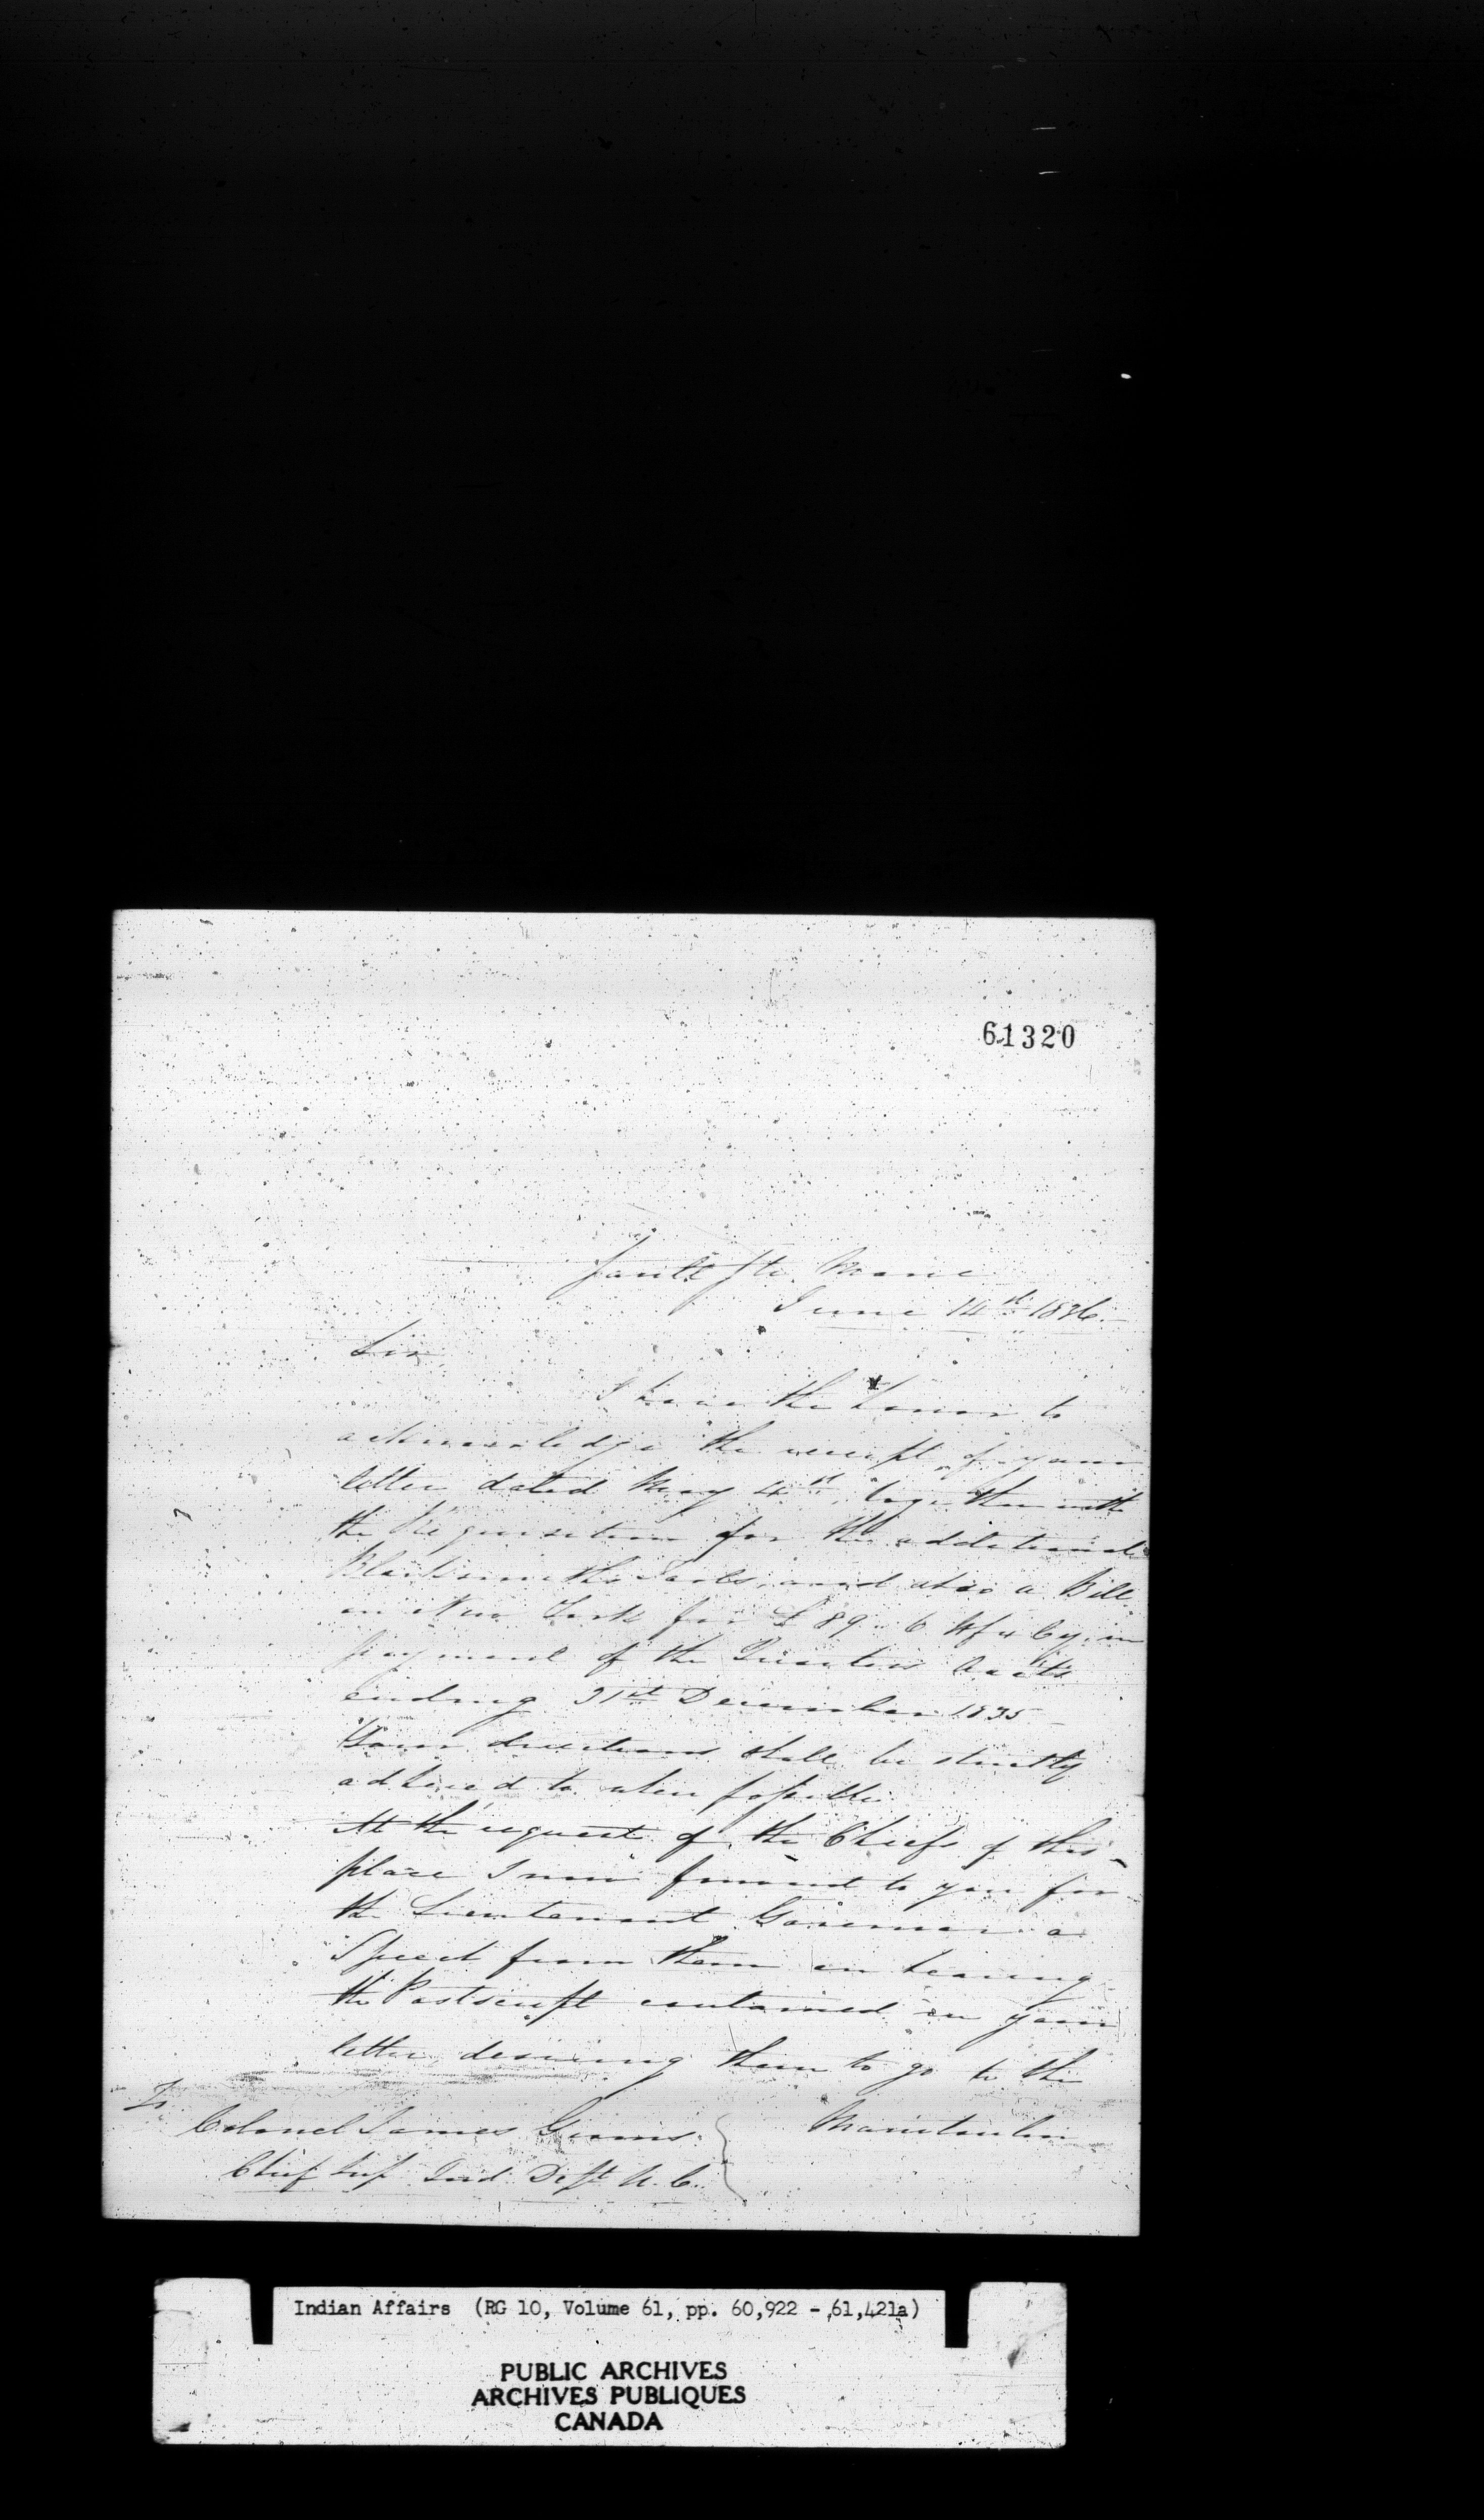 61320
Sault Ste. Marie
June 14th 1836.
Sir
I have the honor to
acknowledge the receipt of your
letter dated May 4th, together with
the Requisition for the additional
Blacksmiths Tools, and also a Bill
on New York for £89 " 6 in
payment of the Quarters Accts
ending 31st December 1835
Your directions shall be strictly
adhered to when possible
At the request of the Chiefs of this
place I now forward to you for
the Lieutenant Governor a
Speech from them on hearing
the Postscript contained in your
letter, desiring them to go to the
Manitoulin
To
Colonel James Givins
Chief Sup Ind Dept U. C.
Indian Affairs (RG 10, Volume 61, pp. 60,922 - 61,421a)
PUBLIC ARCHIVES
ARCHIVES PUBLIQUES
CANADA